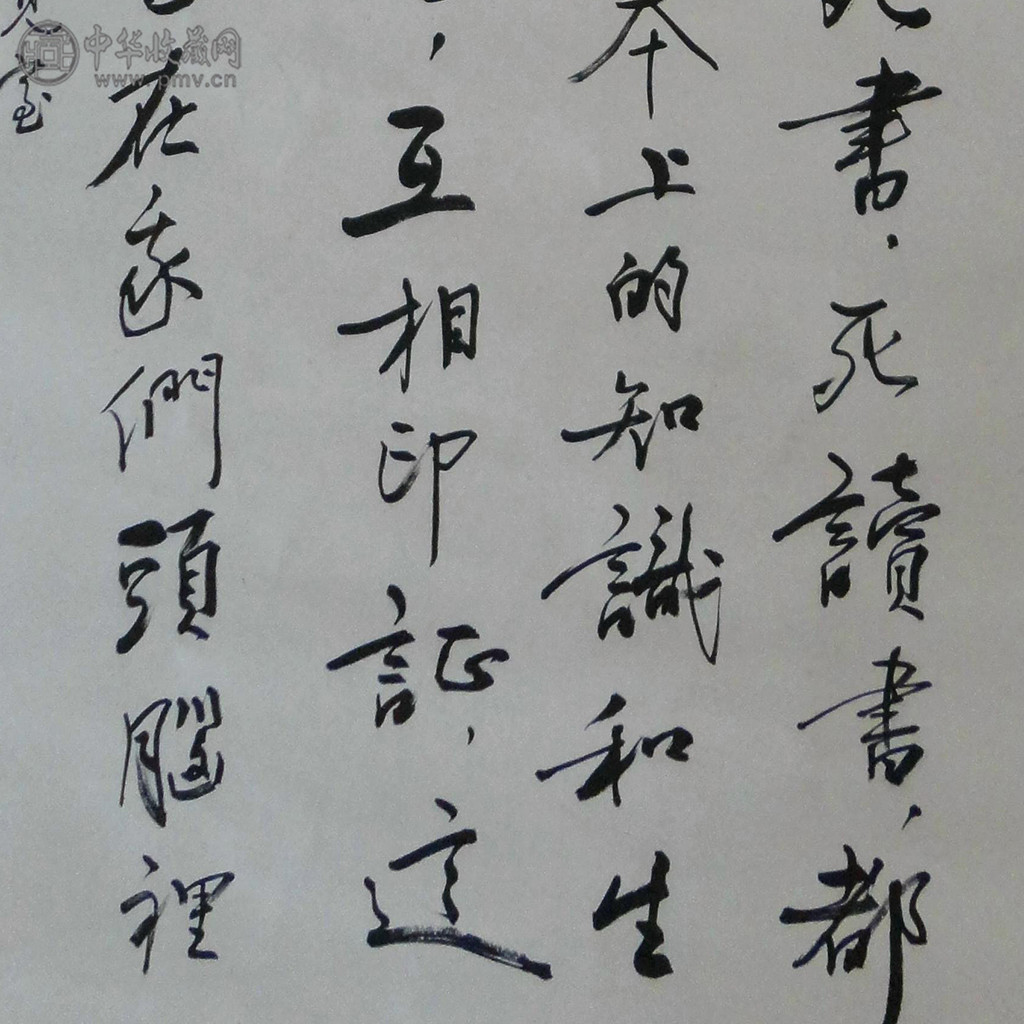 書，死讀書，都
本上的知識和生
，互相印証，這
在我們頭腦裡
室
中华收藏网
www.pmv.cn